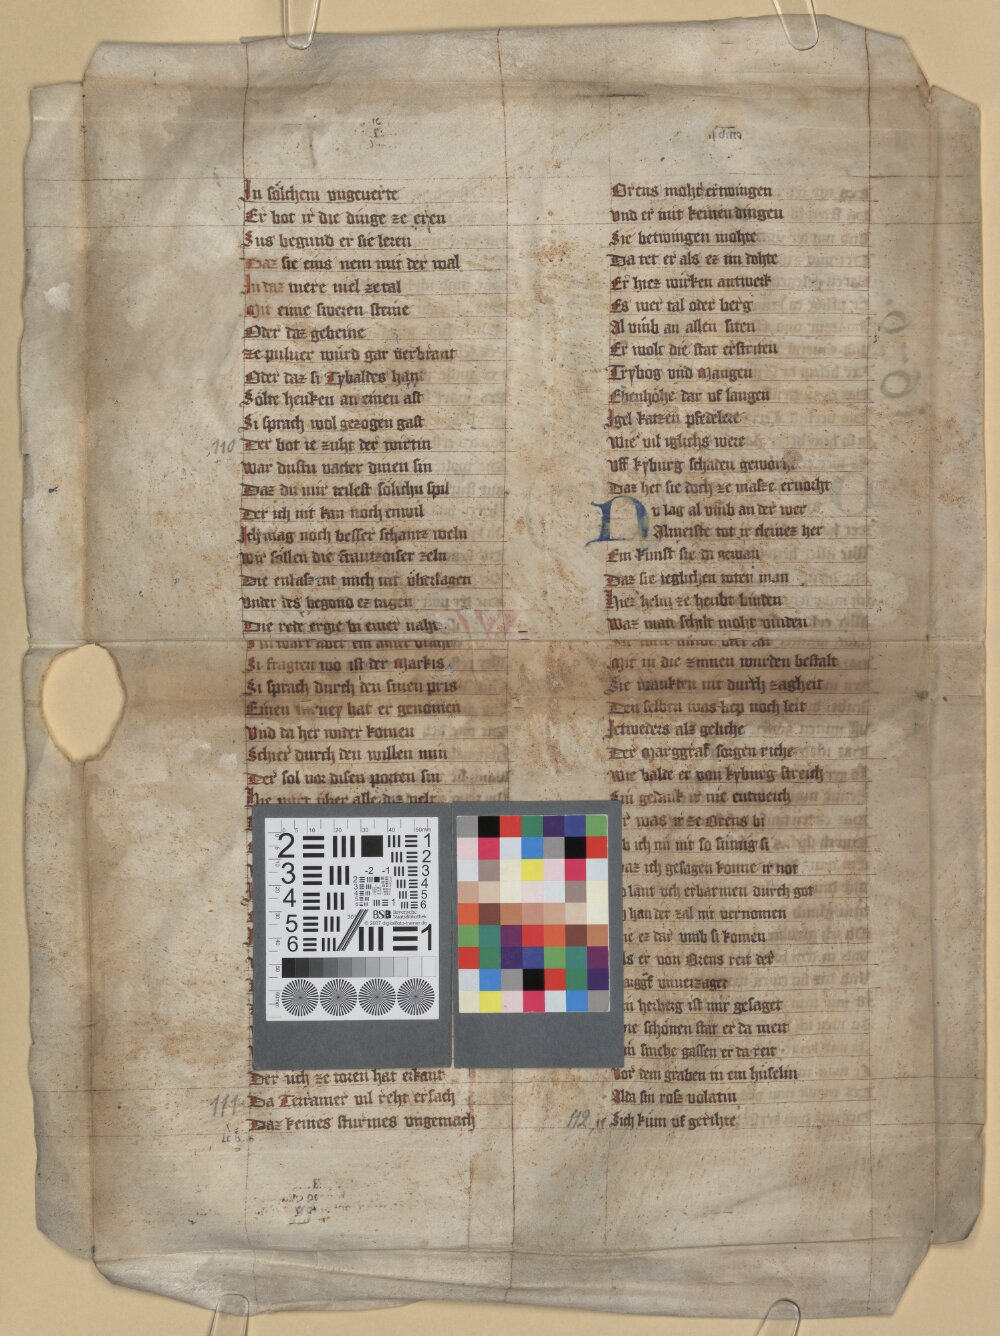 In sölchem vngeuerte
Er bot ir die dinge ze eren
Sus begund er sie leren
Daz sie eins nem mit der wal
In daz mere viel ze tal
Mit eine sweren steine
Oder daz gebeine
ze puluer würd gar verbrant
Oder daz si Tybaldes hant
Sölte henken an einen ast
Si sprach wol gezogen gast
110
Der bot ie zuht der wirtin
War dustu vatter dinen sin
Daz du mir teilest sölichu spil
Der ich nit kan noch enwil
Ich mag noch besser schantz weln
Wir söllen die frantzoiser zeln
Die enlassent mich nit überladen
Vnder des begond ez tagen
Die rede ergie in einer naht
Si fragten wo ist der Markis
Si sprach durch den sinen pris
Einen turney hat er genomen
Vnd da her wider komen
Schier durch den willen min
Der sol vor disen porten sin
Hie wirt über alle diz velt
Der üch ze toten hat erkant
111
Da Terramer vil reht ersach
Daz keines sturmes vngemach
Orens moht ertwingen
Vnd er mit keinen dingen
Sie betwingen mohte
Da tet er als ez im tohte
Er hiez wirken antwerk
Es wer tal oder berg
Al vmb an allen siten
Er wolt die stat erstriten
Trybog vnd Mangen
Ebenhöhe dar vf langen
Igel katzen pfedelere
Wie vil iglichs were
Vff kyburg schaden geworht
Daz het sie doch ze masze ervorht
Du lag al vmb an der wer
Almeiste tot ir cleinez her
Ein kunst sie da gewan
Daz sie ieglichen toten man
Hiez helm ze heubt binden
Waz man schilt moht vinden
Mit in die zinnen wurden bestalt
Sie wankten nit durch zagheit
Den selben was liep noch leit
Ietweders als geliche
Der Marggraf sorgen riche
Wie balde er von kyburg streich
Sin gedank ir nie entweich
Er was ir ze Orens bi
Ob ich nu nit so sinnig si
Daz ich gesagen konne ir not
So lant üch erbarmen durch got
Ich han der zal nit vernomen
Wie ez dar vmb si komen
Als er von Orens reit der
Marggf vnuerzaget
Sin herberg ist mir gesaget
Wie schönen stat er da meit
Ein smehe gassen er da reit
Vor dem graben in ein hüselin
Alda sin rosz volatin
112
Sich kum vf gerihte
2
3
4
5
6
1
BSB Bayerische Staatsbibliothek
© 2007 digitalfoto-trainer.de